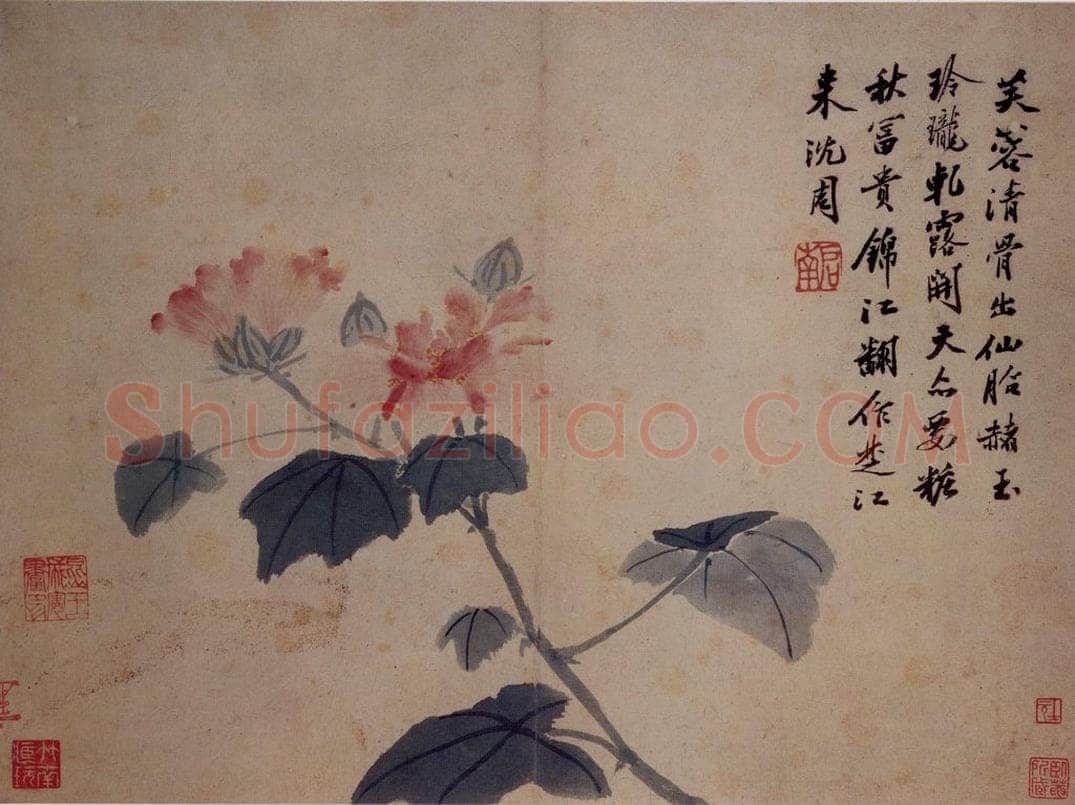 芙蓉清骨出仙胎赭玉
玲瓏軋露開天亦要粧
秋冨貴錦江翻作楚江
来沈周
启南
Shufaziliao.COM